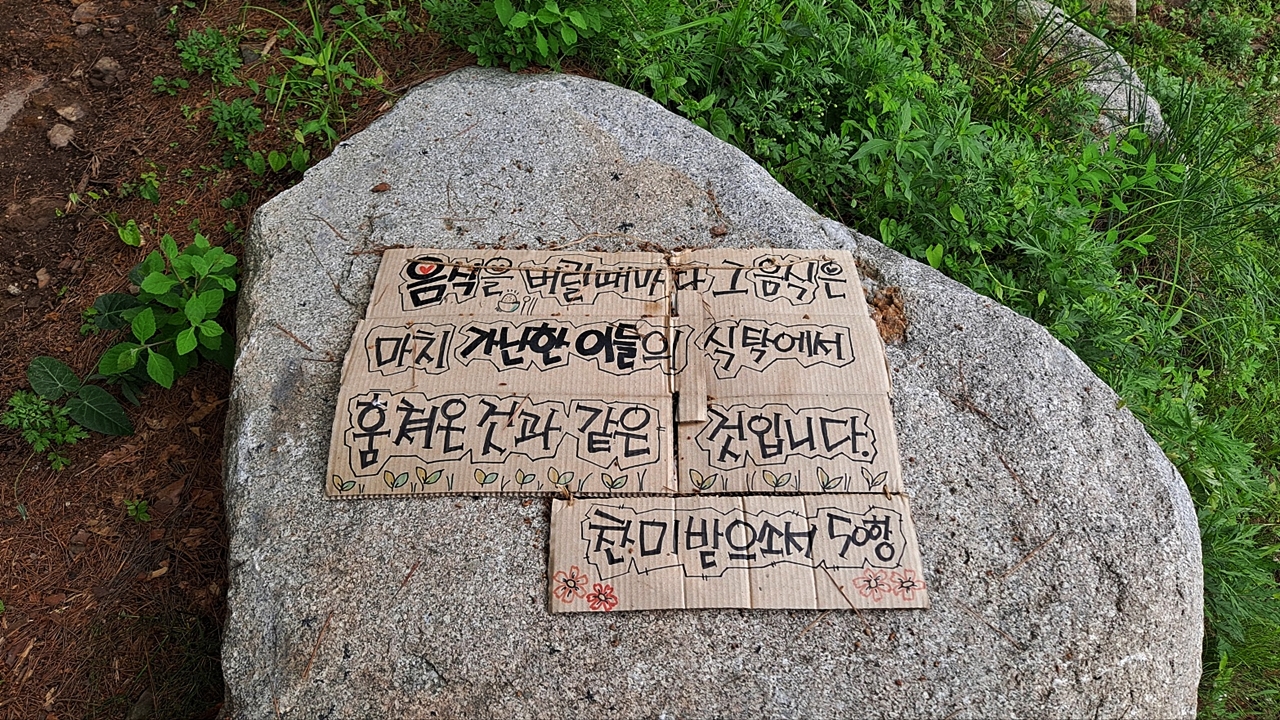 음식을 버릴때마다 그 음식은
마치 가난한 이들의 식탁에서
훔쳐온 것과 같은 것입니다.
찬미받으소서 50항